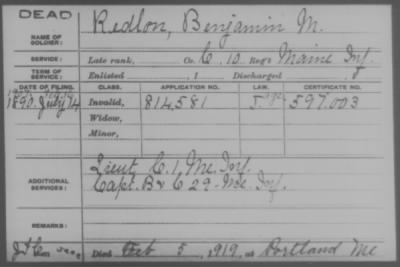 DEAD
NAME OF SOLDIER: Redlon, Benjamin M.
SERVICE: Late rank, Co. C, 10 Reg't Maine Inf.
TERM OF SERVICE: Enlisted , 1 Discharged , 1
DATE OF FILING. CLASS. APPLICATION NO. LAW. CERTIFICATE NO.
1890 July 14 Invalid, 814,581 J 597.003
Widow,
Minor,
ADDITIONAL SERVICES: Lieut C. 1, Me. Inf.
Capt. B & C 29- Me. Inf.
REMARKS:
Died Feb 5, 1919, at Portland Me